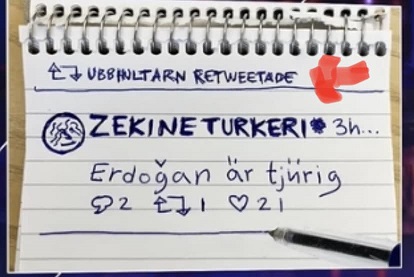 UBBHULTARN RETWEETADE
ZEKINE TURKERI 3h...
Erdoğan är tjürig
2 1 21